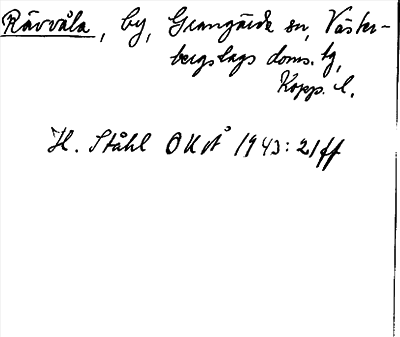 Rävvåla, by, Grangärde sn, Väster-
bergslags doms. tg,
Kopp. l.
H. Ståhl OKÅ 1943: 21 ff